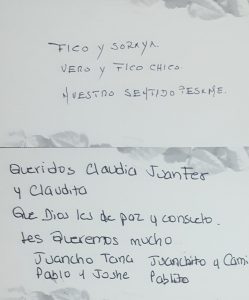 FICO y SORAYA.
VERO y FICO CHICO
NUESTRO SENTIDO PESAME.
Queridos Claudia JuanFer
y Claudita
Que Dios les de paz y consuelo.
Les queremos mucho
Juancho Tana Juanchito y Cami
Pablo y Joshe Pablito